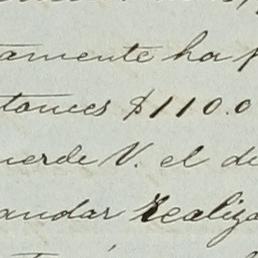 amente ha p
tonces $110.0
uerde V. el de
andar realiza